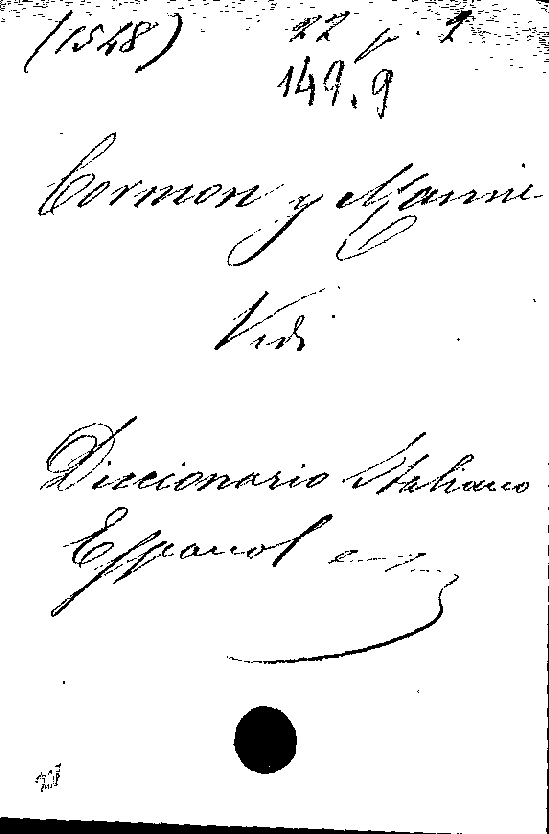 (1548) 22 p. 2
149.9
Cormon y Manni
Vedi
Diccionario Italiano
Espanol